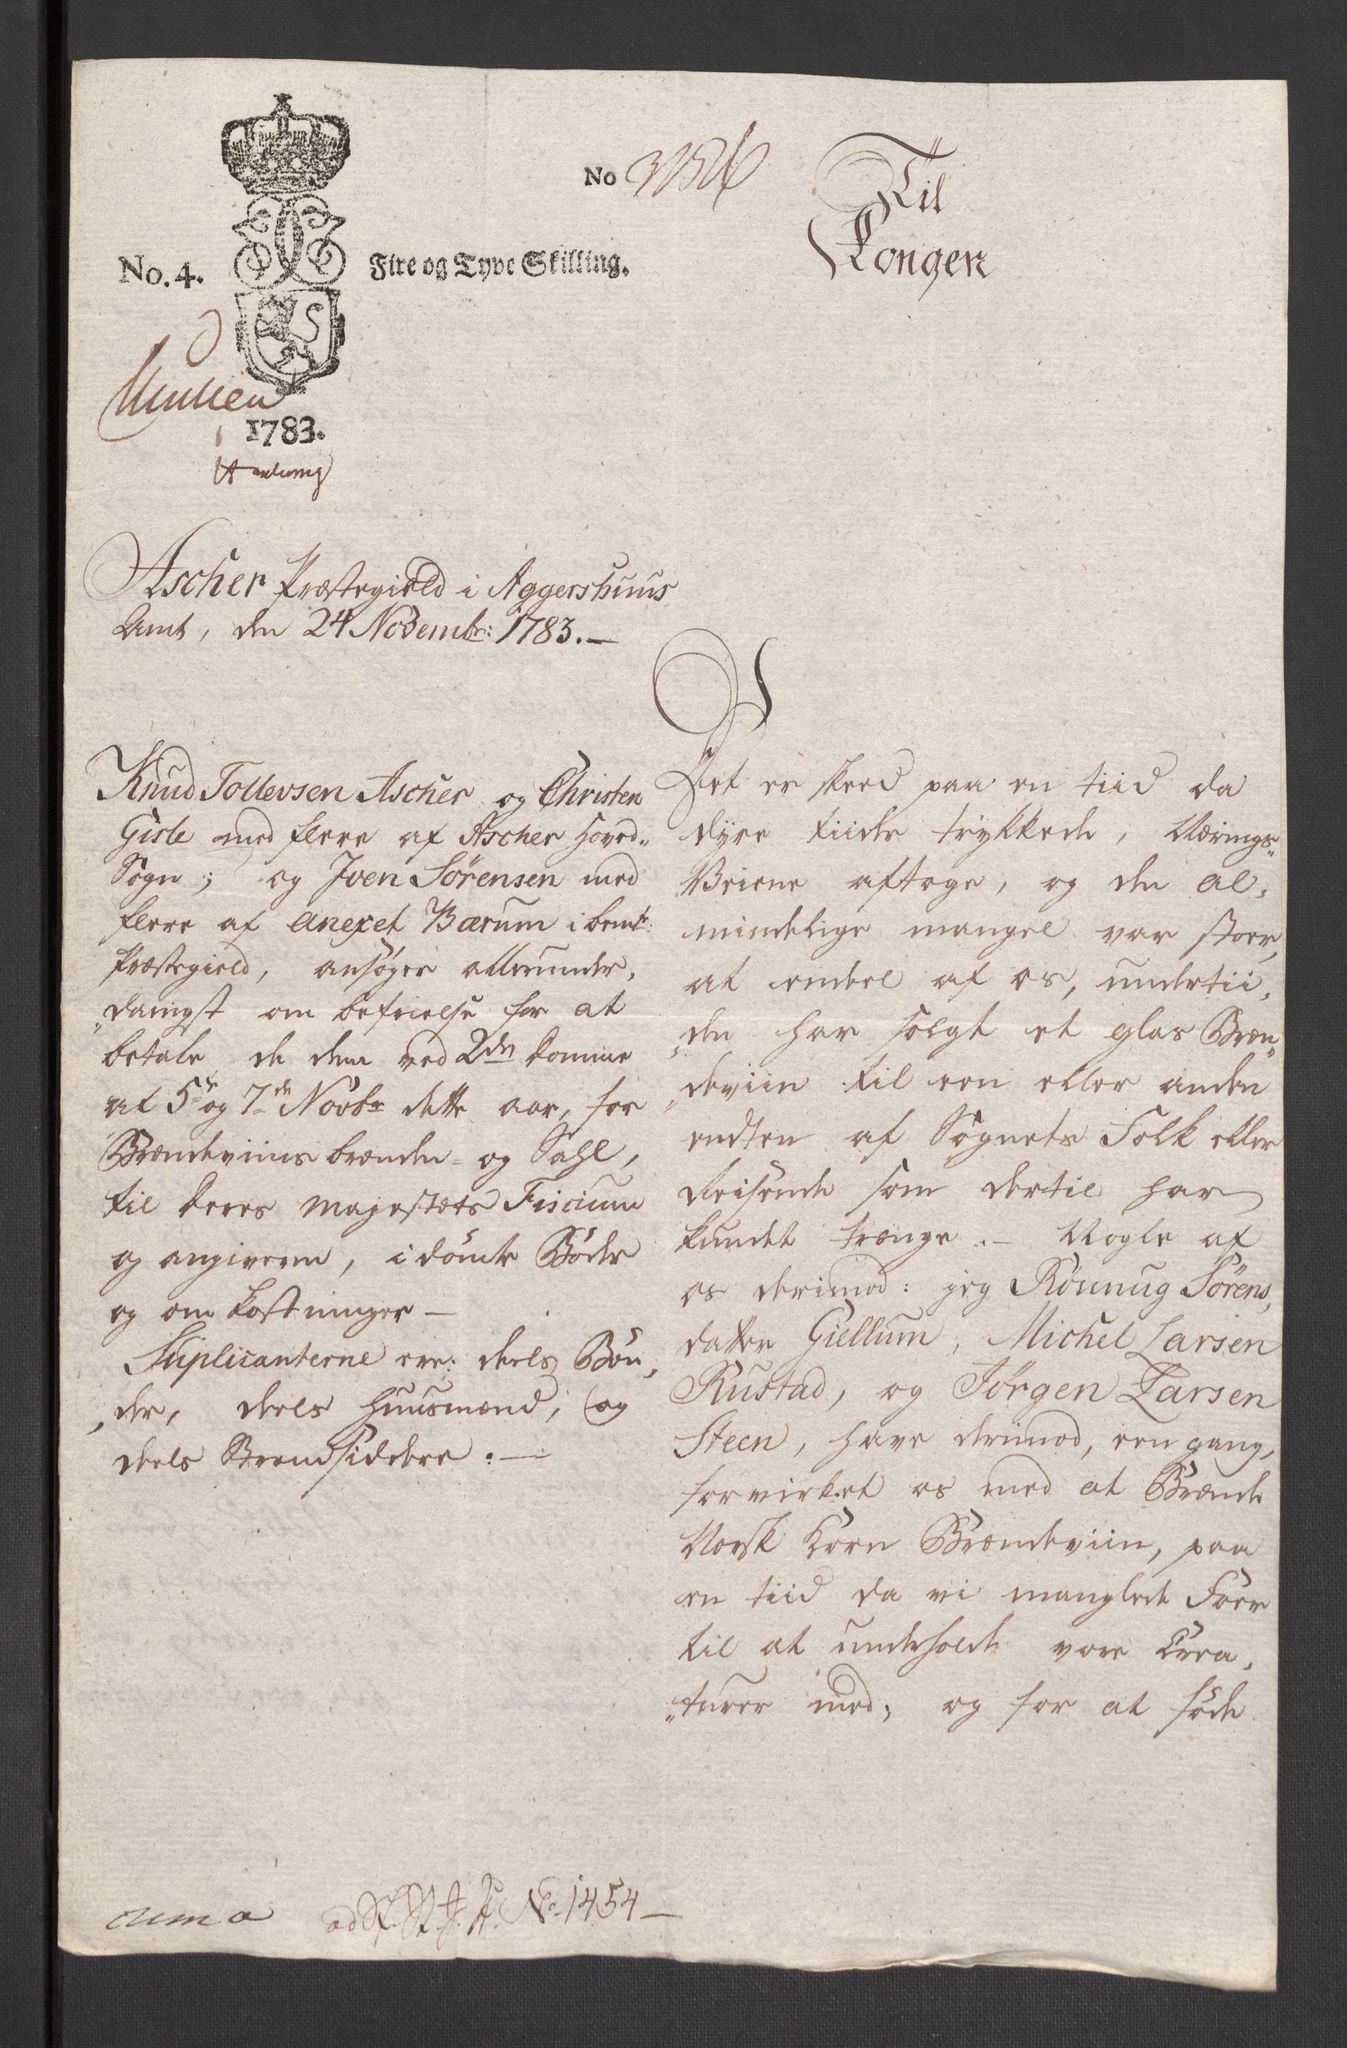 No 
Til
Kongen
No. 4. Fire og Tyve Skilling.
1783.
Ascher Præstegield i Aggershuus
Amt, den 24 Novembr: 1783. —
Knud Tollevsen Ascher og Christen
Gisle med flere af Ascher Hoved-
Sogn; og Iven Sørensen med
flere af anexet Bærum i bemte:
Præstegield, ansøger allerunder,
„danigst om befrielse for at
betale de dem ved 2de Domme
af 5te og 7de Novbr dette aar, for
Brændeviins brænden- og Sahl,
til Deres Majestæts Fiscum
og angiveren, idømte Bøder
og omkostninger —
Suplicanterne ere: deels Bøn,
„der, deels Huusmænd, og
deels Strandsiddere. —
Det er skeed paa en tiid da
dyre tiider trykkede, Nærings-
Veiene aftoge, og den al,
mindelige mangel var stoer,
at endeel af os, undertii,
„den har solgt et glas Bræn„
„deviin til een eller anden
endten af Sognets Folk eller
Reisende som dertil har
kundet trænge. — Nogle af
os derimod: jeg Rönnug Sørens,
datter Giellum, Michel Larsen
Rustad, og Jörgen Larsen
Steen, have derimod, een gang,
forvirket os med at Brænde
Norsk Korn Brændeviin, paa
en tiid da vi manglede Foer
til at underholde vore Crea,
„turer med; og for at føde
No. 1454 —